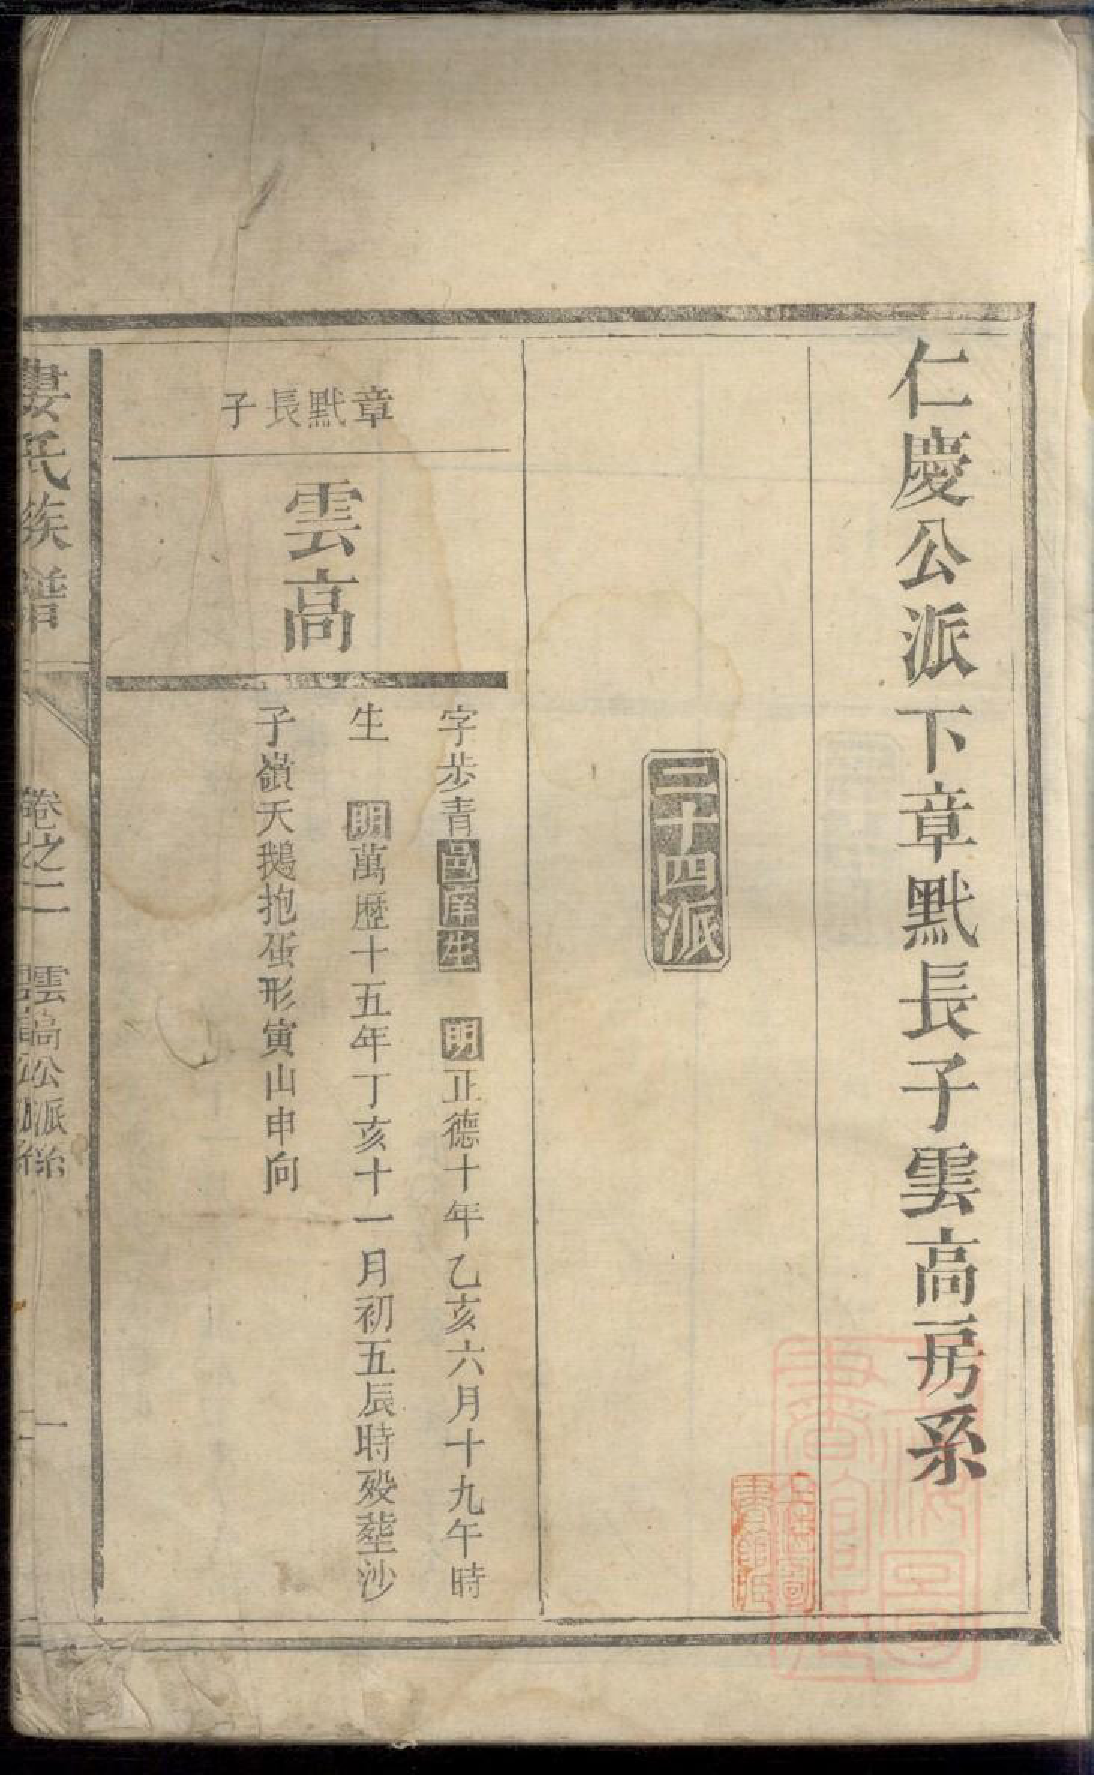 仁慶公派下章默長子雲高房系
二十四派
章默長子
雲高
字步青邑庠生　明正德十年乙亥六月十九午時
生　明萬歷十五年丁亥十一月初五辰時歿塟沙
子嶺天鵝抱蛋形寅山申向
婁氏族譜
卷之二　雲高公派系